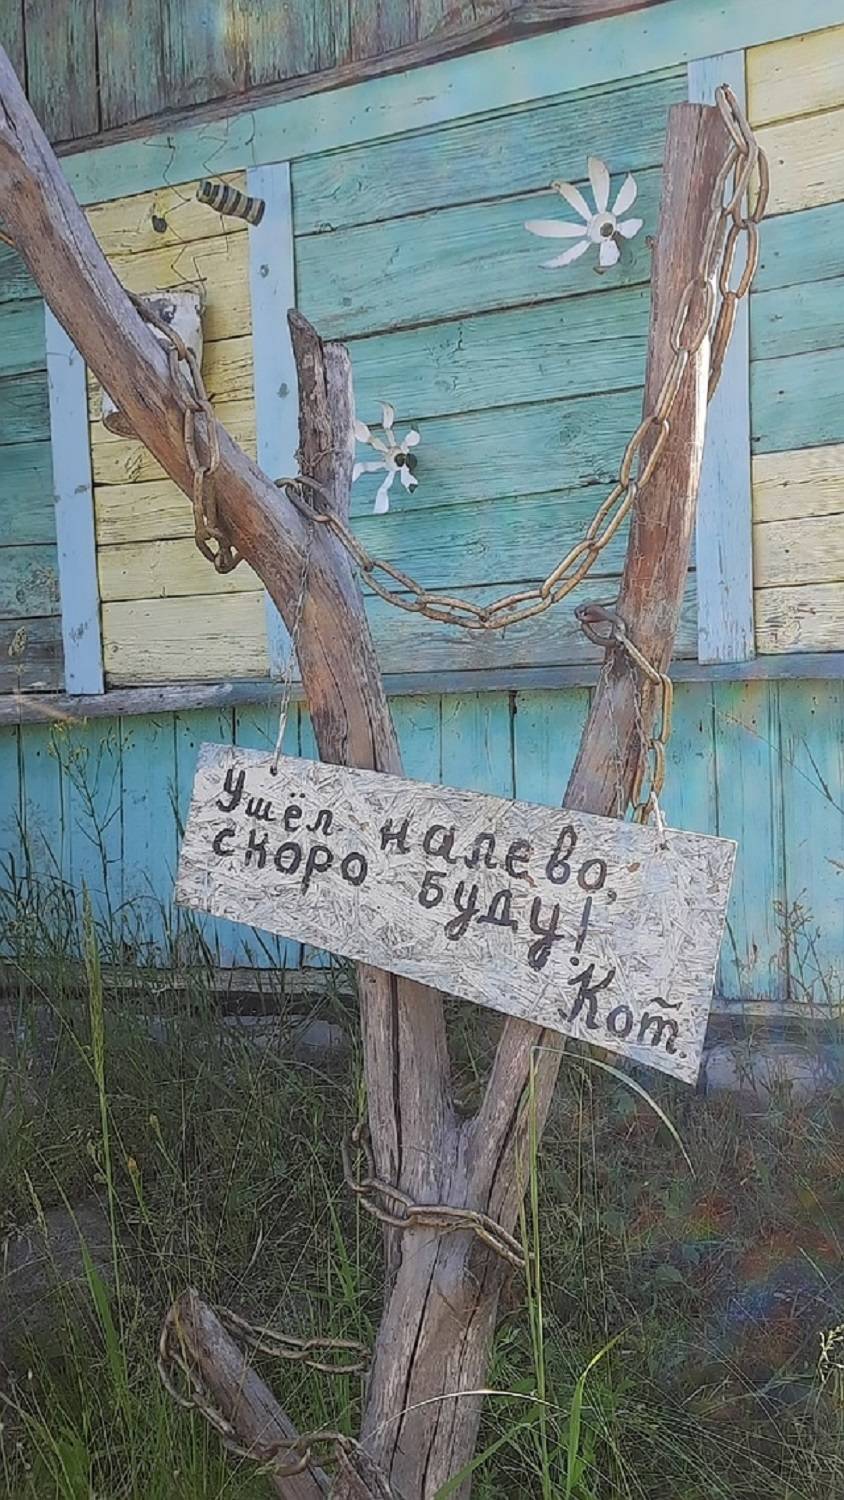 Ушёл налево,
скоро буду!
Кот.